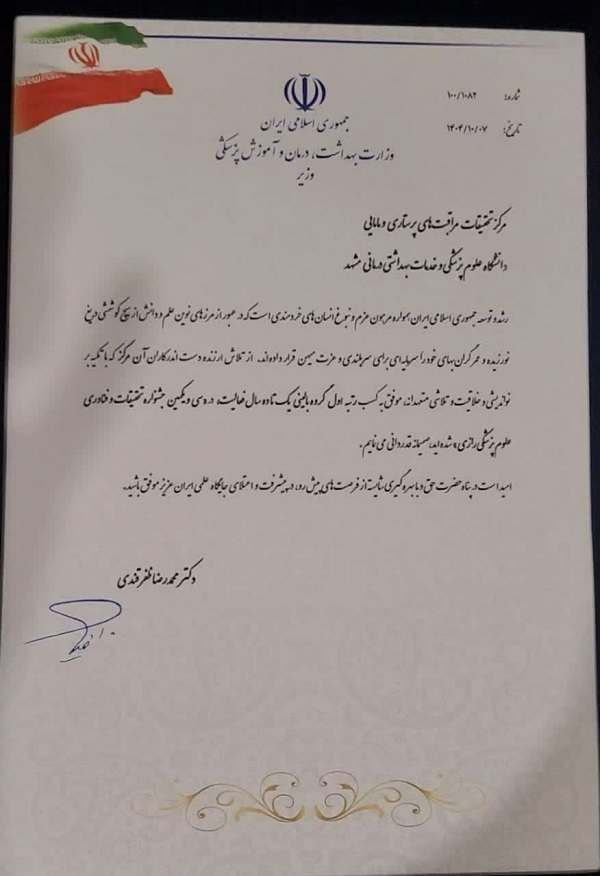 شماره: ۱۰۰/۱۰۸۲
تاریخ: ۱۴۰۴/۱۰/۰۷
جمهوری اسلامی ایران
وزارت بهداشت، درمان و آموزش پزشکی
وزیر
مرکز تحقیقات مراقبت‌های پرستاری و مامایی
دانشگاه علوم پزشکی و خدمات بهداشتی درمانی مشهد
رشد و توسعه جمهوری اسلامی ایران، همواره مرهون عزم و نبوغ انسان‌های خردمندی است که در عبور از مرزهای نوین علم و دانش از هیچ کوششی دریغ
نورزیده و عمر گران‌بهای خود را سرمایه‌ای برای سربلندی و عزت میهن قرار داده‌اند. از تلاش ارزنده دست اندرکاران آن مرکز که با تکیه بر
نواندیشی و خلاقیت و تلاشی متعهدانه، موفق به کسب رتبه اول گروه بالینی یک تا ده سال فعالیت، در «سی و یکمین جشنواره تحقیقات و فناوری
علوم پزشکی رازی» شده اید، صمیمانه قدردانی می نمایم.
امید است در پناه حضرت حق و با بهره گیری شایسته از فرصت‌های پیش رو، در پیشرفت و اعتلای جایگاه علمی ایران عزیز موفق باشید.
دکتر محمدرضا ظفرقندی